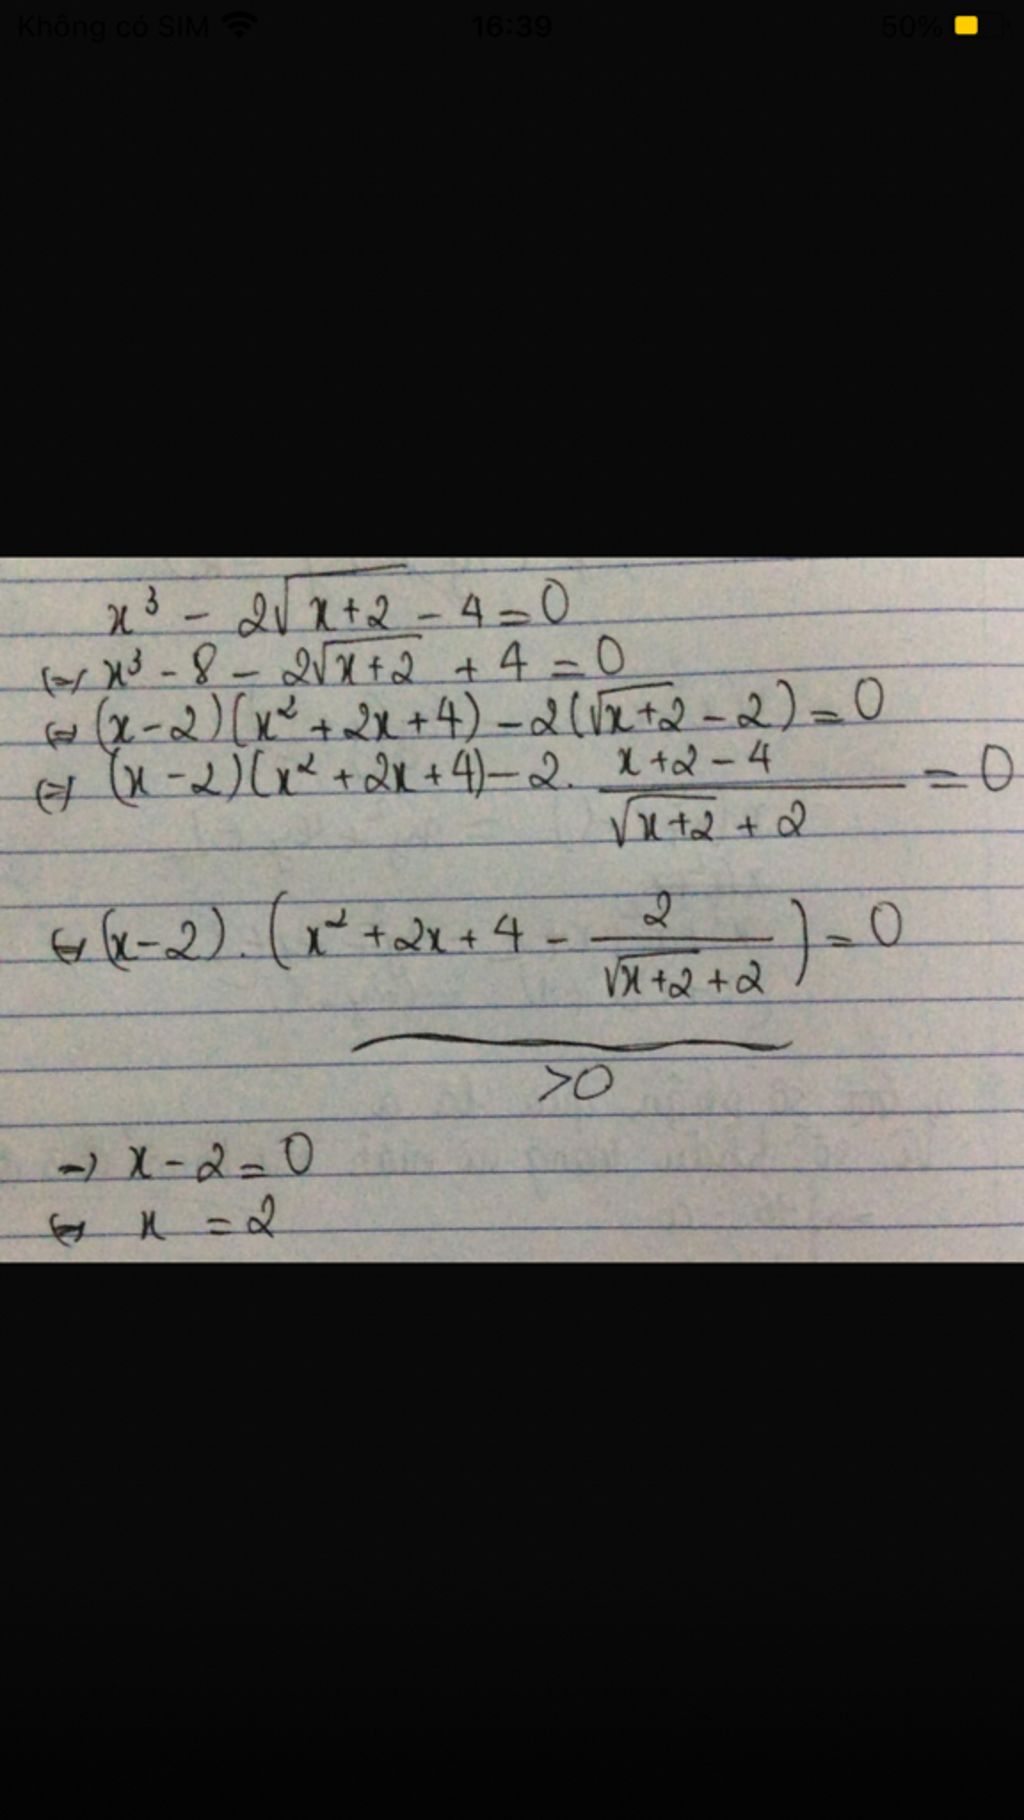 Không có SIM 16:39 50%
x³ - 2√(x+2) - 4 = 0
(=) x³ - 8 - 2√(x+2) + 4 = 0
⇔ (x-2)(x² + 2x + 4) - 2(√(x+2) - 2) = 0
(=) (x-2)(x² + 2x + 4) - 2. (x+2-4)/(√(x+2) + 2) = 0
⇔ (x-2).(x² + 2x + 4 - 2/(√(x+2) + 2)) = 0
>0
→ x - 2 = 0
⇔ x = 2